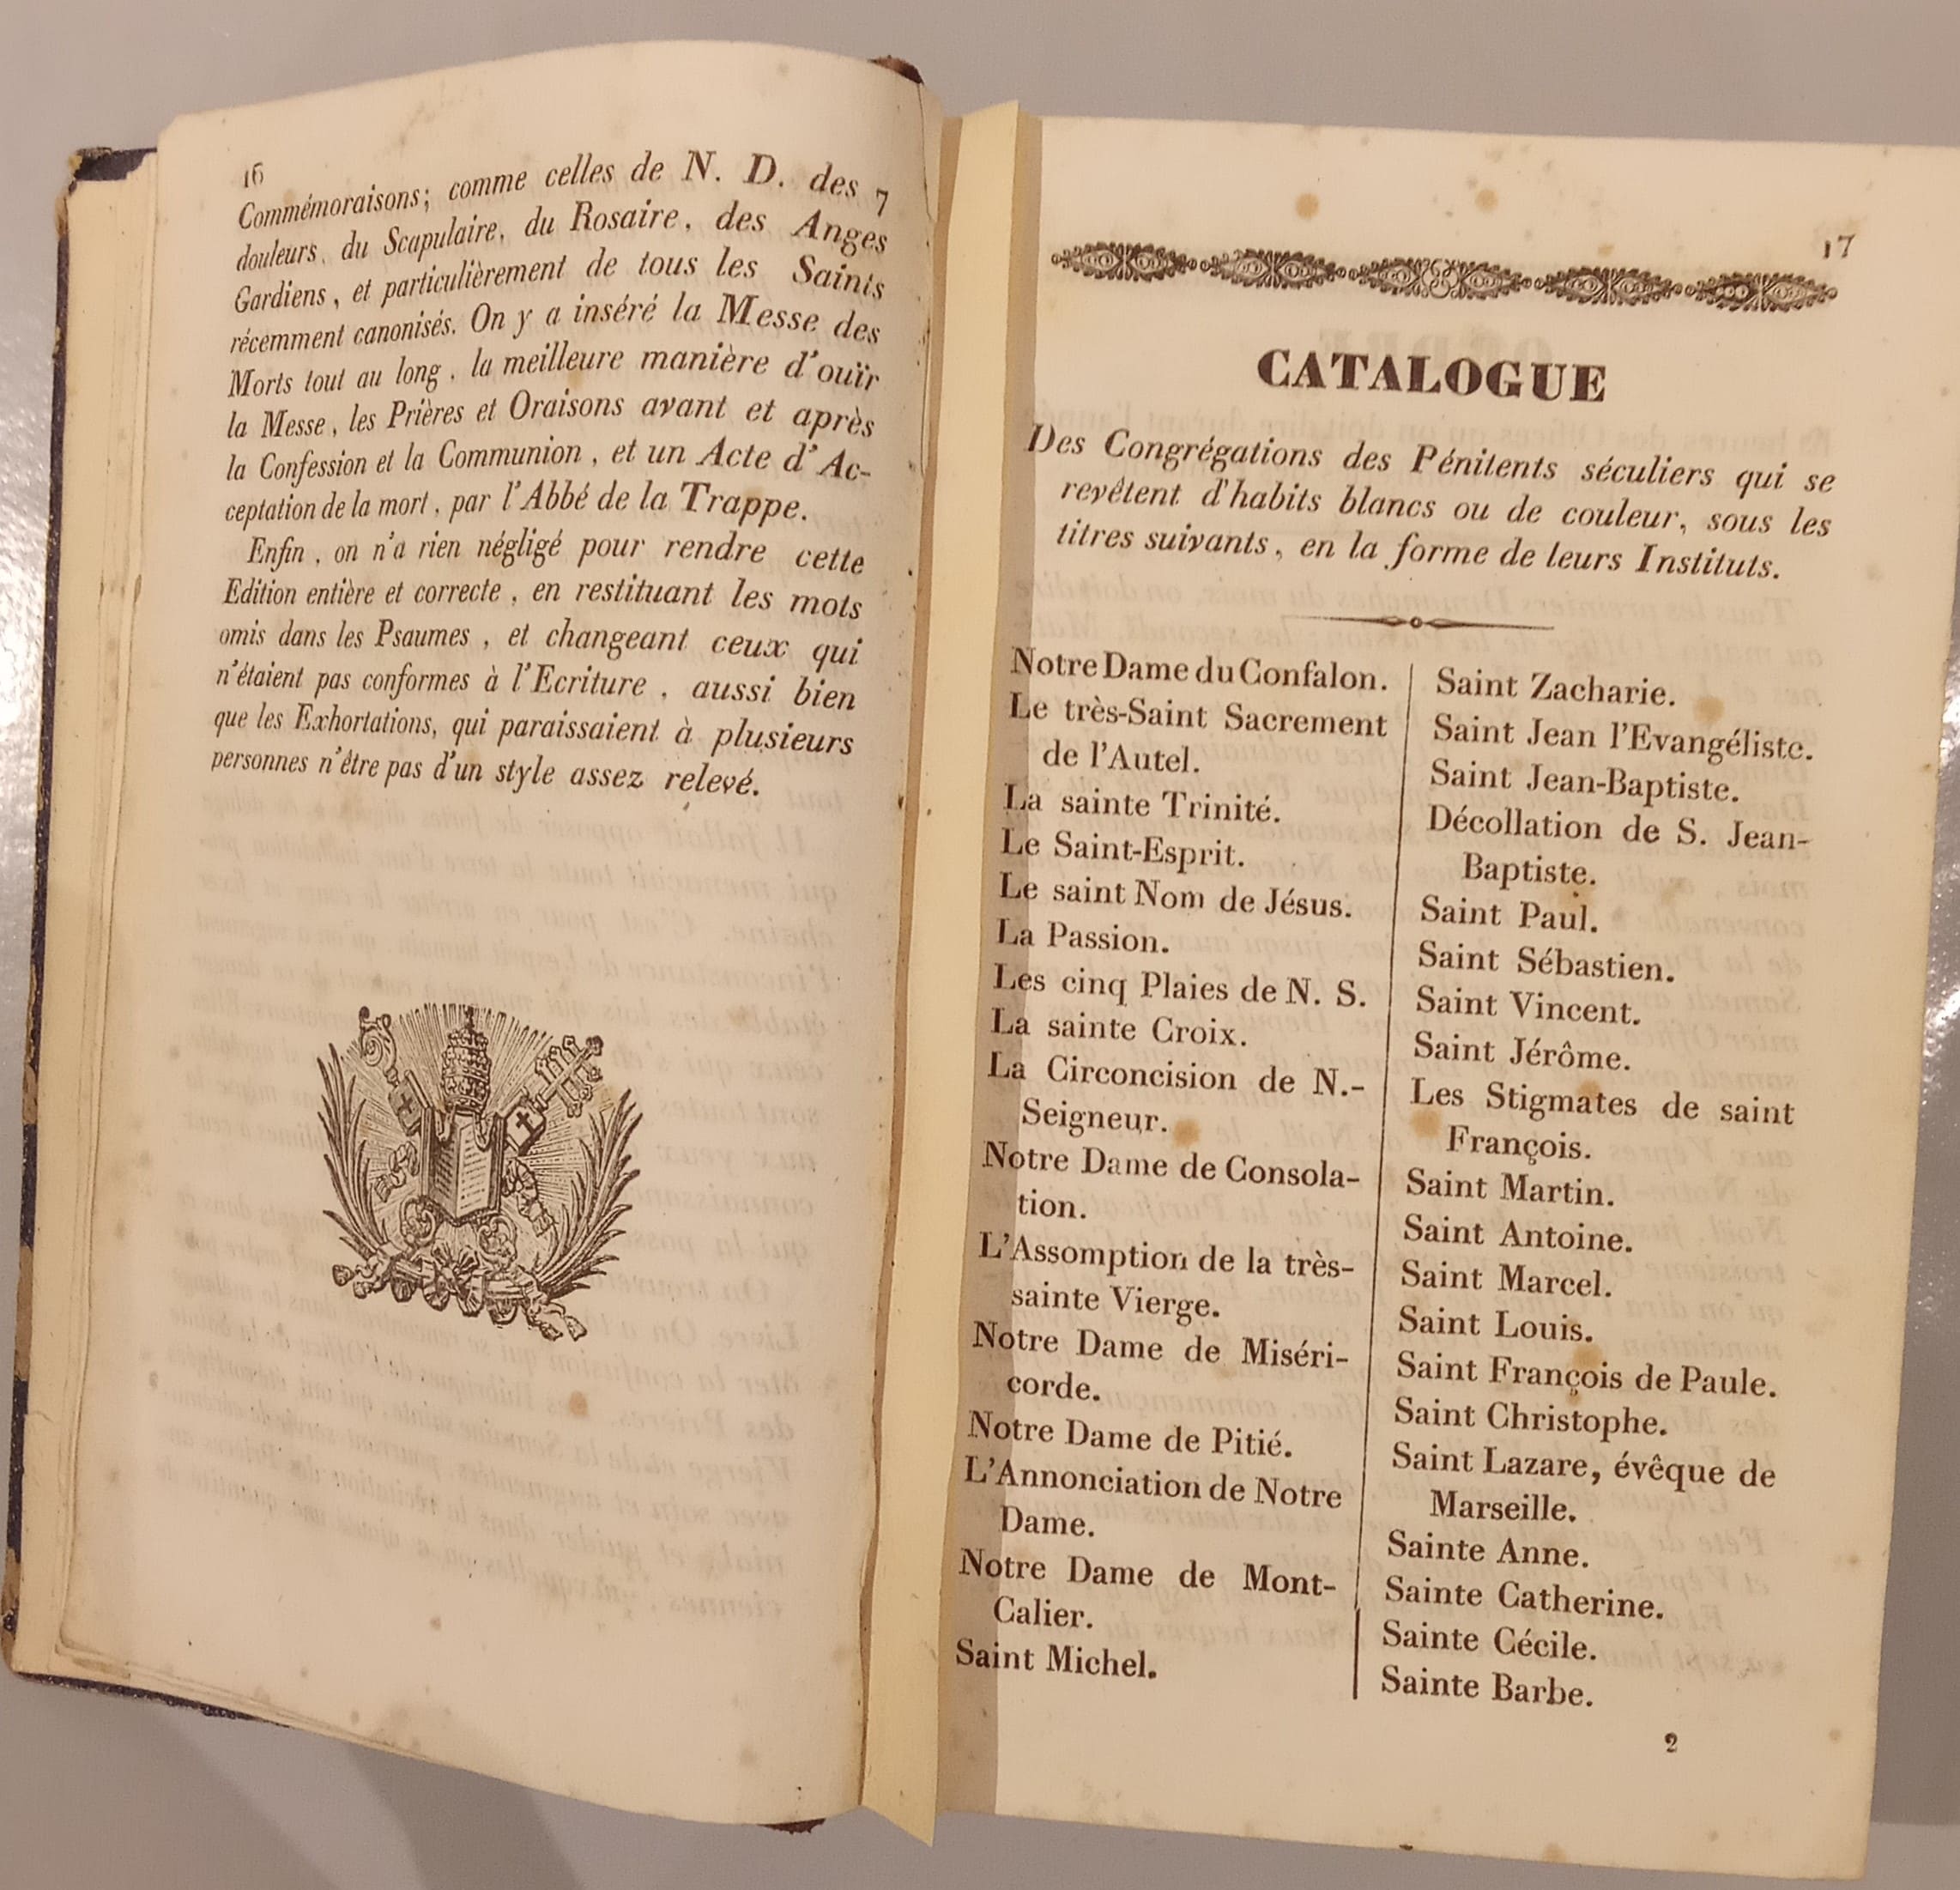 16
Commémoraisons; comme celles de N. D. des 7
douleurs, du Scapulaire, du Rosaire, des Anges
Gardiens, et particulièrement de tous les Saints
récemment canonisés. On y a inséré la Messe des
Morts tout au long, la meilleure manière d'ouïr
la Messe, les Prières et Oraisons avant et après
la Confession et la Communion, et un Acte d'Ac-
ceptation de la mort, par l'Abbé de la Trappe.
Enfin, on n'a rien négligé pour rendre cette
Edition entière et correcte, en restituant les mots
omis dans les Psaumes, et changeant ceux qui
n'étaient pas conformes à l'Ecriture, aussi bien
que les Exhortations, qui paraissaient à plusieurs
personnes n'être pas d'un style assez relevé.
17
CATALOGUE
Des Congrégations des Pénitents séculiers qui se
revêtent d'habits blancs ou de couleur, sous les
titres suivants, en la forme de leurs Instituts.
Notre Dame du Confalon.
Le très-Saint Sacrement
de l'Autel.
La sainte Trinité.
Le Saint-Esprit.
Le saint Nom de Jésus.
La Passion.
Les cinq Plaies de N. S.
La sainte Croix.
La Circoncision de N.-
Seigneur.
Notre Dame de Consola-
tion.
L'Assomption de la très-
sainte Vierge.
Notre Dame de Miséri-
corde.
Notre Dame de Pitié.
L'Annonciation de Notre
Dame.
Notre Dame de Mont-
Calier.
Saint Michel.
Saint Zacharie.
Saint Jean l'Evangéliste.
Saint Jean-Baptiste.
Décollation de S. Jean-
Baptiste.
Saint Paul.
Saint Sébastien.
Saint Vincent.
Saint Jérôme.
Les Stigmates de saint
François.
Saint Martin.
Saint Antoine.
Saint Marcel.
Saint Louis.
Saint François de Paule.
Saint Christophe.
Saint Lazare, évêque de
Marseille.
Sainte Anne.
Sainte Catherine.
Sainte Cécile.
Sainte Barbe.
2